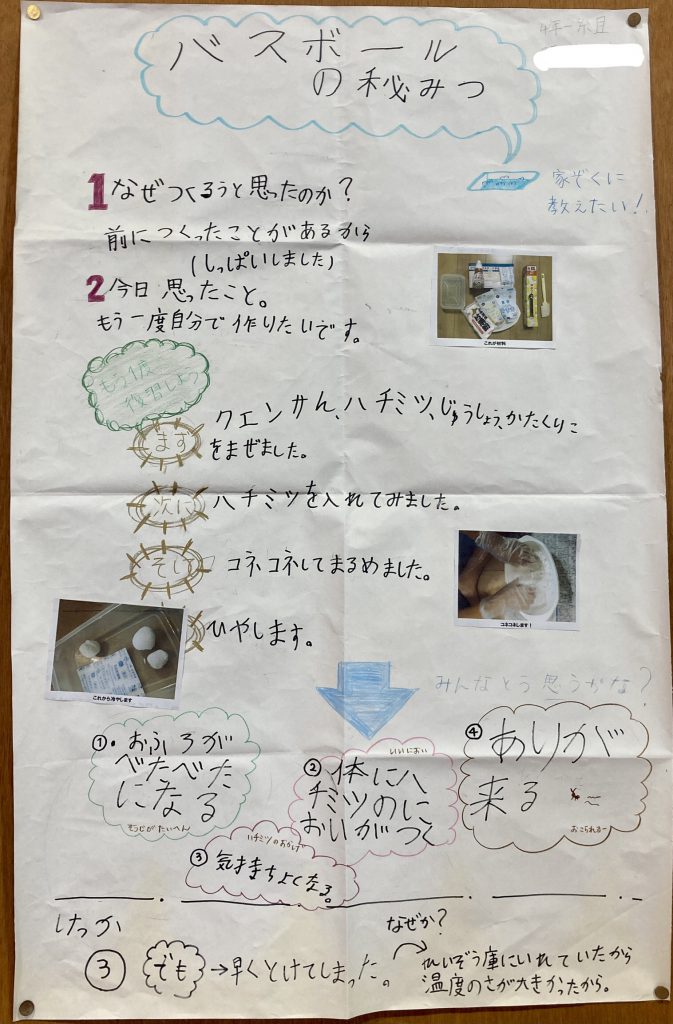 バスボール
の秘みつ
家ぞくに
教えたい!
1 なぜつくろうと思ったのか?
前につくったことがあるから
(しっぱいしました)
2 今日思ったこと。
もう一度自分で作りたいです。
これが材料
もう1度
復習しよう
まず
クエンさん、ハチミツ、じゅうしょう、かたくりこ
をまぜました。
次に
ハチミツを入れてみました。
そして
コネコネしてまるめました。
コネコネします!
ひやします。
これから冷やします
みんなどう思うかな?
①・おふろが
べたべた
になる
そうじがたいへん
いいにおい
②体にハ
チミツのに
おいがつく
ハチミツのおかげ
③気持ちよくなる。
④ありが
来る
おこられるー
けっか
③ でも→早くとけてしまった。
なぜか?
れいぞう庫にいれていたから
温度のさが大きかったから。